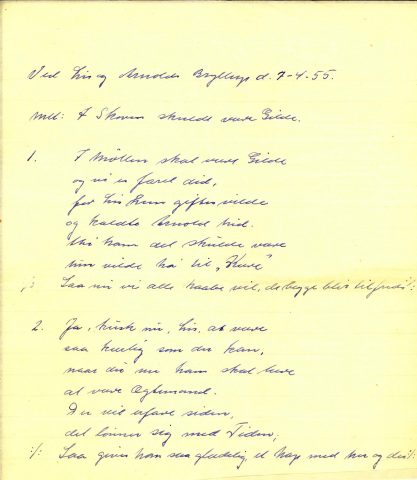 Ved Lis og Arnolds Bryllup d. 7-4-55.
Mel: I Skoven skulde være Gilde.
1. I Møllen skal være Gilde
og vi er faret did,
for Lis hun giftes vilde
og kaldte Arnold hid.
thi ham det skulde være
hun vilde ha' til "Kære"
Saa nu vi alle haabe vil, de begge bliv tilfreds :/:
2. Ja, husk nu, Lis, at være
saa huslig som du kan,
naar du nu ham skal lære
at være Ægtemand.
Du vil erfare siden,
det lønner sig med Tiden,
:/: Saa giver han saa gladelig et Kys med her og der :/: